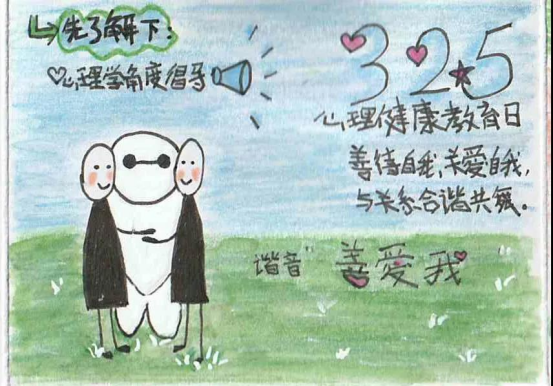 先了解下：
心理学角度倡导
325
心理健康教育日
善待自我、关爱自我，
与关系合谐共舞。
谐音“善爱我